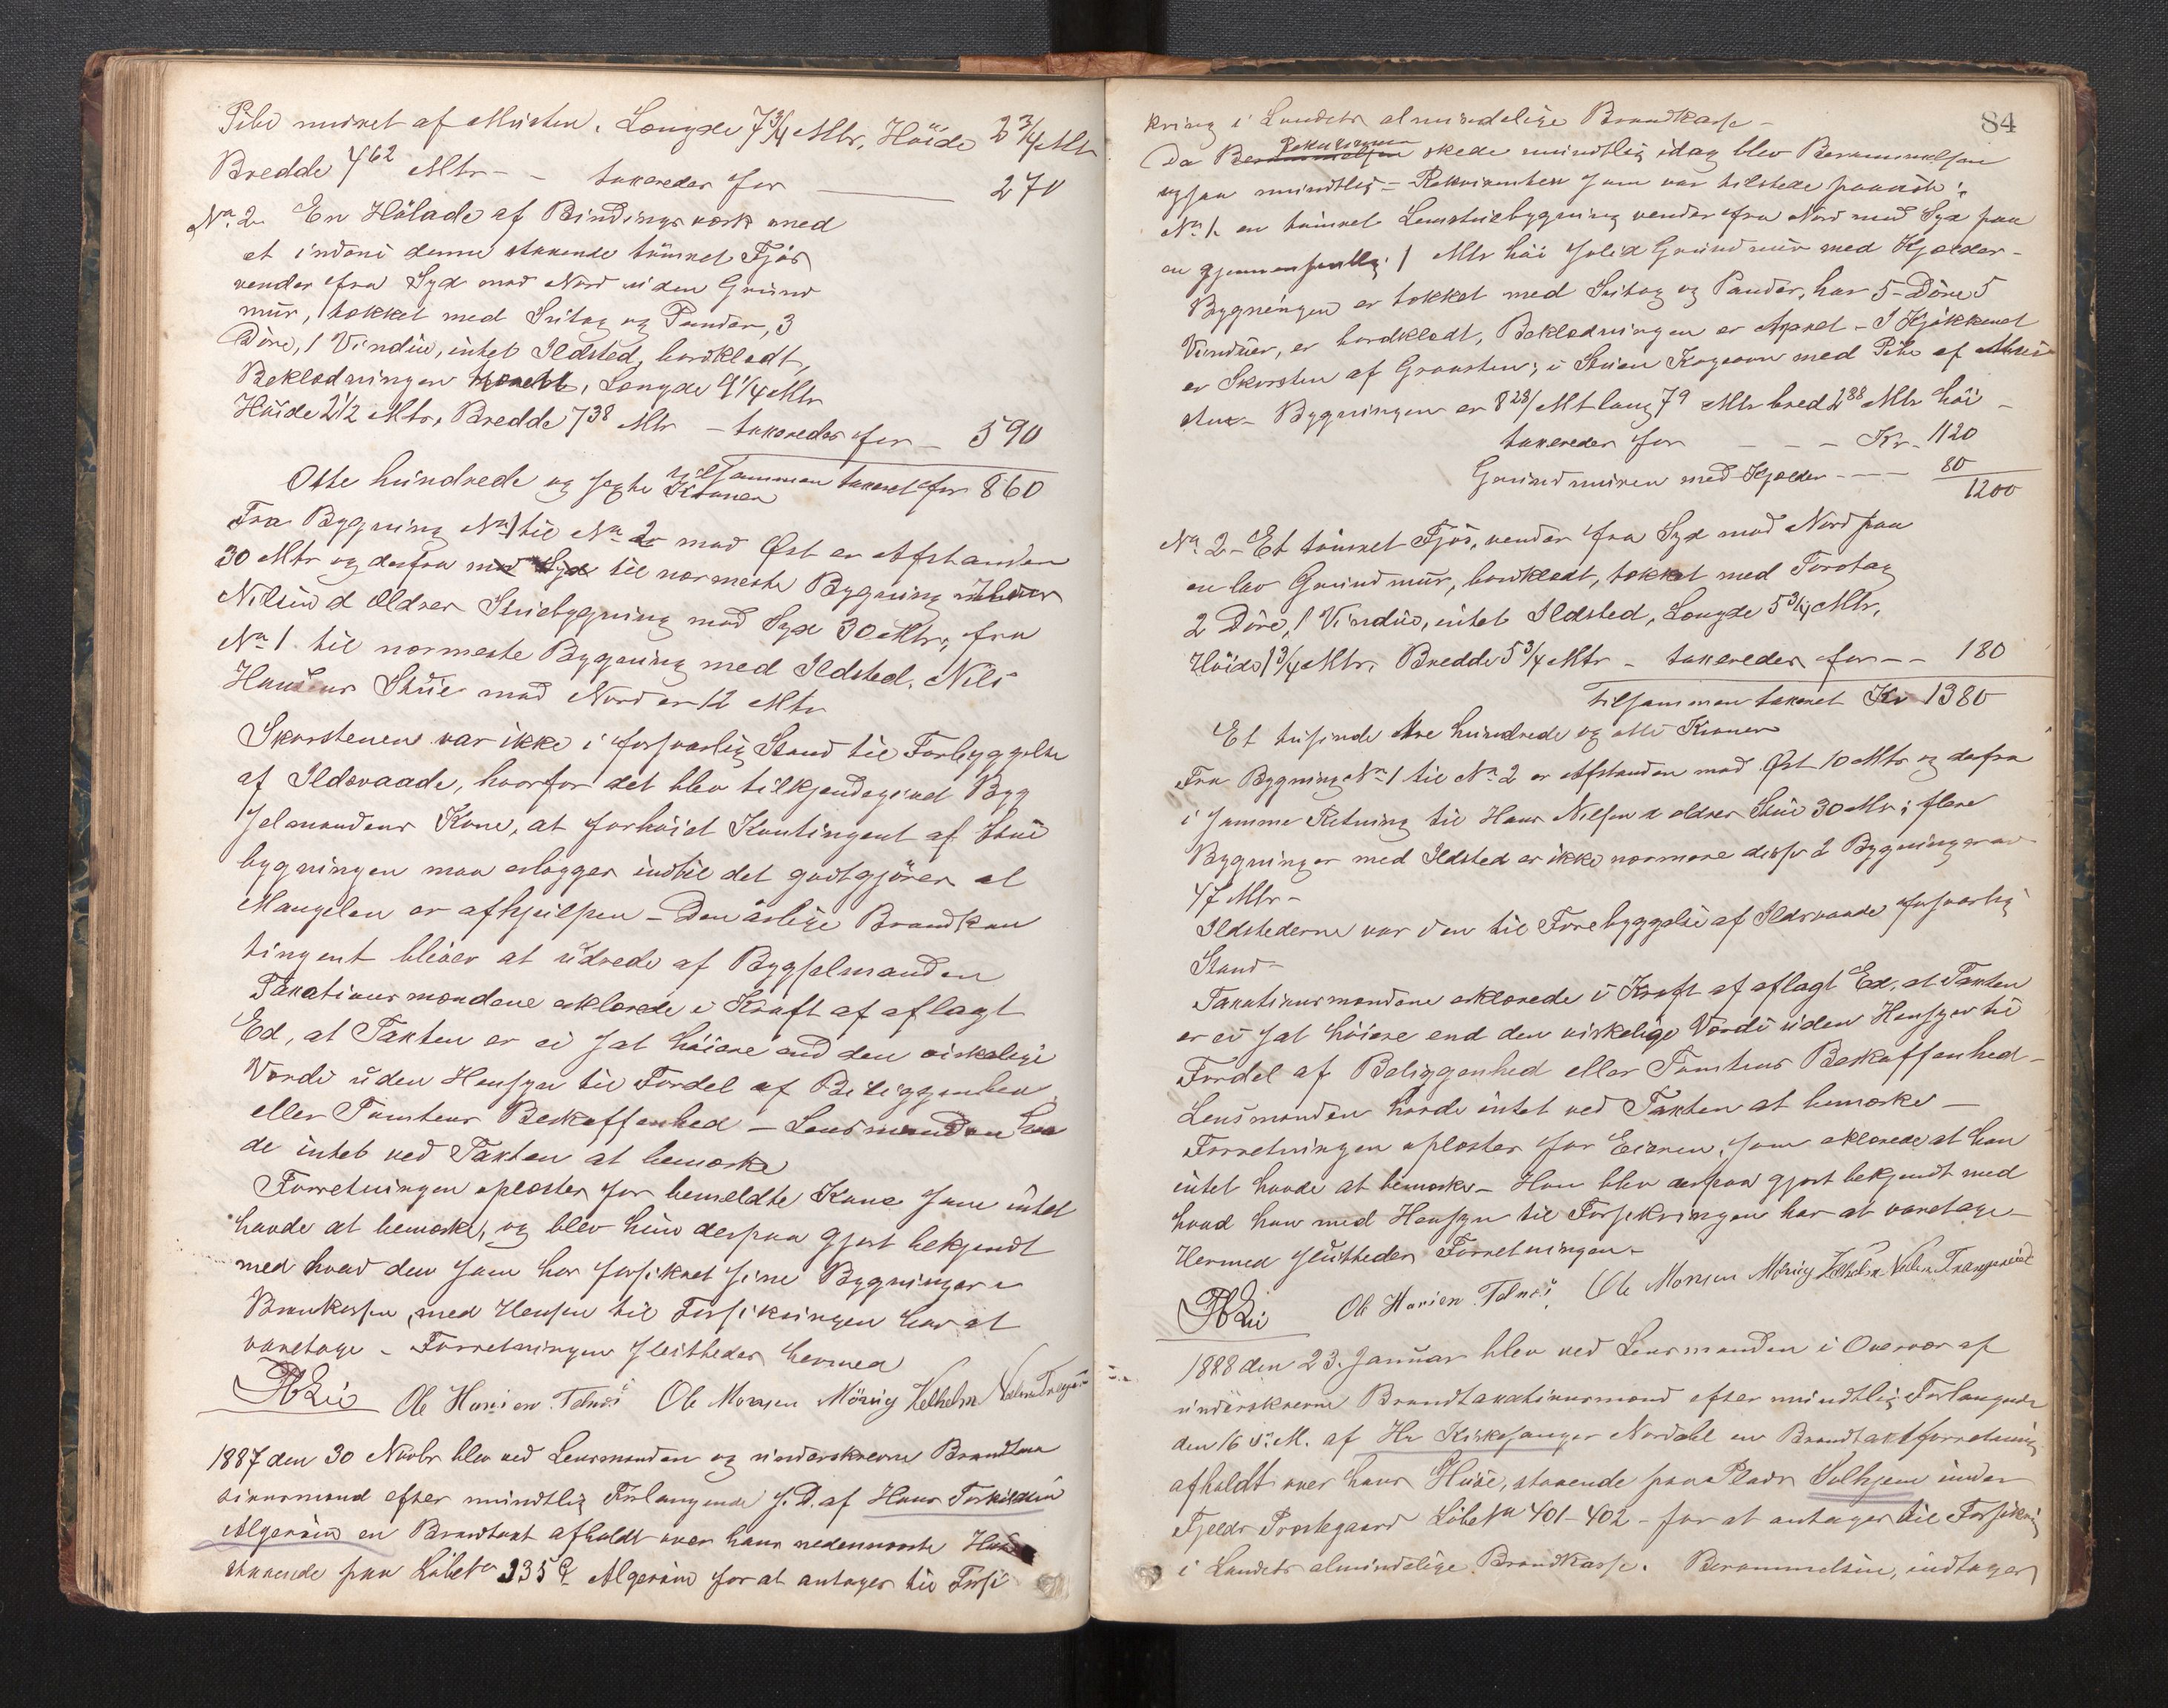 Pibe muret af Mursten. Længde 7 3/4 Mtr, Höide 2 3/4 Mtr
Bredde 4 62 Mtr - - taxeredes for 270
No 2. En Hölade af Bindingsværk med
et indeni denne staaende tömret Fjös
vender fra Syd mod Nord uden Grund
mur, tækket med Sutag og Pander, 3
Döre, 1 Vindue, intet Ildsted, bordklædt,
Beklædningen , Længde 9 1/4 Mtr
Höide 2 1/2 Mtr, Bredde 7 38 Mtr - taxeredes for - 590
tilsammen taxeret for 860
Otte hundrede og sexti Kroner
Fra Bygning No 1 til No 2 mod Öst er Afstanden
30 Mtr og derfra mod Syd til nærmeste Bygning
Nilsen d ældres Stuebygning mod Syd 30 Mtr, fra
No 1 til nærmeste Bygning med Ildsted, Nils
Hansens Stue mod Nord er 12 Mtr
Skorstenen var ikke i forsvarlig Stand til Forbyggelse
af Ildsvaade, hvorfor det blev tilkjendegivet Byg
selmandens Kone, at forhöiet Kontingent af Stue
bygningen maa erlægges indtil det godtgjöres at
Mangelen er afhjulpen - Den årlige Brandkon
tingent bliver at udrede af Bygselmanden
Taxationsmændene erklærede i Kraft af aflagt
Ed, at Taxten er ei sat höiere end den virkelige
Værdi uden Hensyn til Fordel af Beliggenhed
eller Tomtens Beskaffenhed - Lensmanden hav
de intet ved Taxten at bemærke
Forretningen oplæstes for bemeldte Kone som intet
havde at bemærke, og blev hun derpaa gjort bekjendt
med hvad den som har forsikret sine Bygninger i
Brankassen, med Hensyn til Forsikringen har at
varetage - Forretningen sluttedes hermed
Ole Hansen Telnes Ole Monsen Möving Vilhelm Nilsen
1887 den 30 Novbr blev ved Lensmanden og underskrevne Brandtaxa
tionsmænd efter mundtlig Forlangende s. D. af Hans Torkildsen
Algeröen en Brandtaxt afholdt over hans nedennævnte Huse
staaende paa Löbe No 335 a Algeröen for at antages til Forsi
84
kring i Landets almindelige Brandkasse -
Da Berammelsen skede mundtlig idag blev Berammelsen
ogsaa mundtlig - Rekvirenten som var tilstede paaviste:
No 1. en tömret Lemstuebygning vender fra Nord mod Syd paa
en gjennemsnitlig 1 Mtr höi solid Grundmur med Kjælder -
Bygningen er tækket med Sutag og Pander, har 5 Döre 5
Vinduer, er bordklædt, Beklædningen er - I Kjökkenet
er Skorsten af Graasten; i Stuen Kogeovn med Pibe af Mur
sten - Bygningen er 8 28 Mt lang 7 9 Mtr bred 2 88 Mtr höi -
taxeredes for - - - Kr. 1120
Grundmuren med Kjælder - - - 80
1200
No 2 - Et tömret Fjös, vender fra Syd mod Nord paa
en lav Grundmur, bordklædt, tækket med Torvtag
2 Döre, 1 Vindue, intet Ildsted, Længde 5 3/4 Mtr,
Höide 1 3/4 Mtr. Bredde 5 3/4 Mtr - taxeredes for - - 180
tilsammen taxeret Kr 1380
Et tusinde tre hundrede og otti Kroner
Fra Bygning No 1 til No 2 er Afstanden mod Öst 10 Mtr og derfra
i samme Retning til Hans Nilsen d ældres Stue 30 Mtr; flere
Bygninger med Ildsted er ikke nærmere disse 2 Bygninger end
47 Mtr -
Ildstederne var i en til Forebyggelse af Ildsvaade forsvarlig
Stand -
Taxationsmændene erklærede i Kraft af aflagt Ed, at Taxten
er ei sat höiere end den virkelige Værdi uden Hensyn til
Fordel af Beliggenhed eller Tomtens Beskaffenhed -
Lensmanden havde intet ved Taxten at bemærke -
Forretningen oplæstes for Eieren, som erklærede at han
intet havde at bemærke - Han blev derpaa gjort bekjendt med
hvad han med Hensyn til Forsikringen har at varetage -
Hermed sluttedes Forretningen -
Ole Hansen Telnes Ole Monsen Möving Vilhelm Nilsen
1888 den 23. Januar blev ved Lensmanden i Overvær af
underskrevne Brandtaxationsmænd efter mundtlig Forlangende
den 16 d. M. af Hr Kirkesanger Nordahl en Brandtaxtforretning
afholdt over hans Huse, staaende paa Plads Solhjem under
Fjelds Præstegaard Löbe No 401 - 402 - for at antages til Forsikring
i Landets almindelige Brandkasse. Berammelsen, indtages